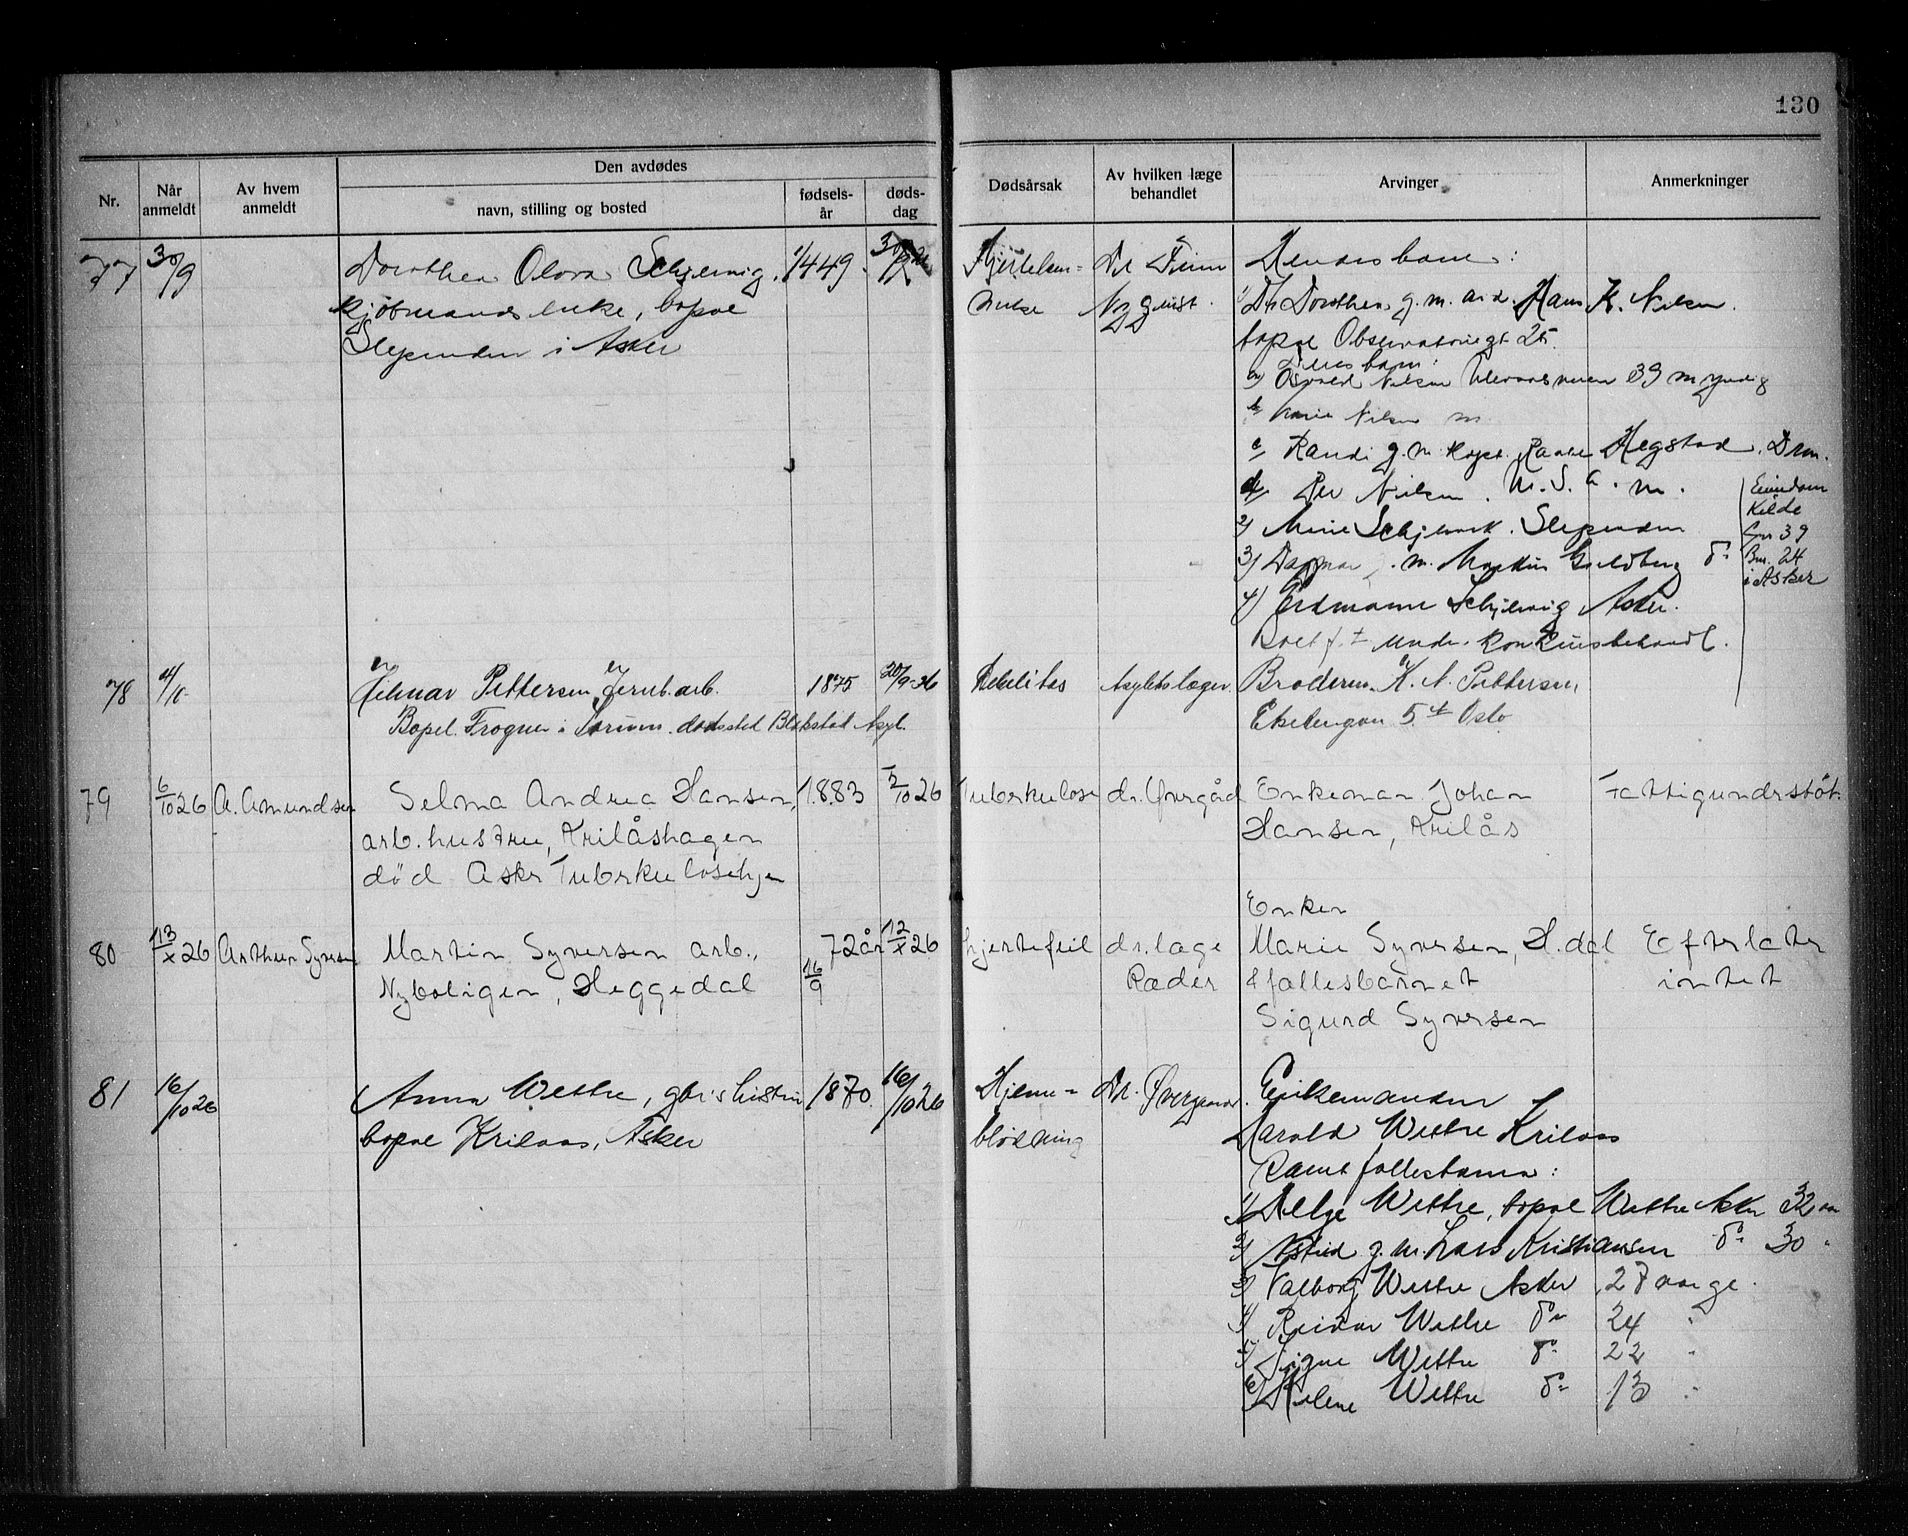 130
Nr.
Når anmeldt
Av hvem anmeldt
Den avdødes
navn, stilling og bosted
fødsels-år
døds-dag
Dødsårsak
Av hvilken læge behandlet
Arvinger
Anmerkninger
77 30/9 Dorthea Olava Schjervig, 1/4 49. 30/9
kjøbmands enke, bopæl
Slependen i Asker
Hjertelam=
melse
Dr
Nyquist.
Hendes barn:
1) Dorthea g.m. Hans K. Nilsen.
bopæl Observatoriegt 25.
Deres barn:
a) Osvald Nilsen Ullevaalsveien 39 myndig
b) Nilsen m
c) Randi g.m. kapt. Hegstad. Drm.
d) Per Nilsen. U.S.A. m.
2) Schjervik. Slependen
3) Dagmar g.m. Martin Guldberg do
4) Schjervig Asker.
Boet under konkursbehandl.
Eiendom
Kilde
Gnr 39
Bnr. 24
i Asker
78 Hilmar Pettersen, Jernb.arb. 1875 20/9-26
Bopel. Frogner i Sørum. dødssted Blakstad Asyl.
Debilitas Asylets læger.
Broderen K. N. Pettersen,
Ekebergvn 5 Oslo
79 6/10 26 A. Amundsen Selma Andrea Hansen, 1883 5/10 26
arb. hustru, Krilåshagen
død Asker Tuberkulosehjem
Tuberkulose dr. Øvergård Enkeman Johan
Hansen, Krilås
Fattigunderstøt.
80 13/x 26 Arthur Syversen Martin Syversen arb., 72 år 12/x 26
Nyboligen, Heggedal 16/9
hjertefeil dr. læge
Ræder
Enken
Marie Syversen, H.dal
& fællesbarnet
Sigurd Syversen
Efterlater
intet
81 16/10 26 Anna Wettre, gbr's hustru 1870. 16/10 26
bopæl Krilaas, Asker
Hjerne=
blødning
Dr. Øvergaard.
Enkemanden
Harald Wettre Krilaas
samt fællesbarn:
1) Helge Wettre, bopæl Wettre Asker 32 aar
2) Astrid g.m. Lars Kristiansen do 30 "
3) Valborg Wettre Asker, 27 aar ge.
4) Reidar Wettre do 24 "
5) Signe Wettre do 22 "
6) Helene Wettre do 13 "